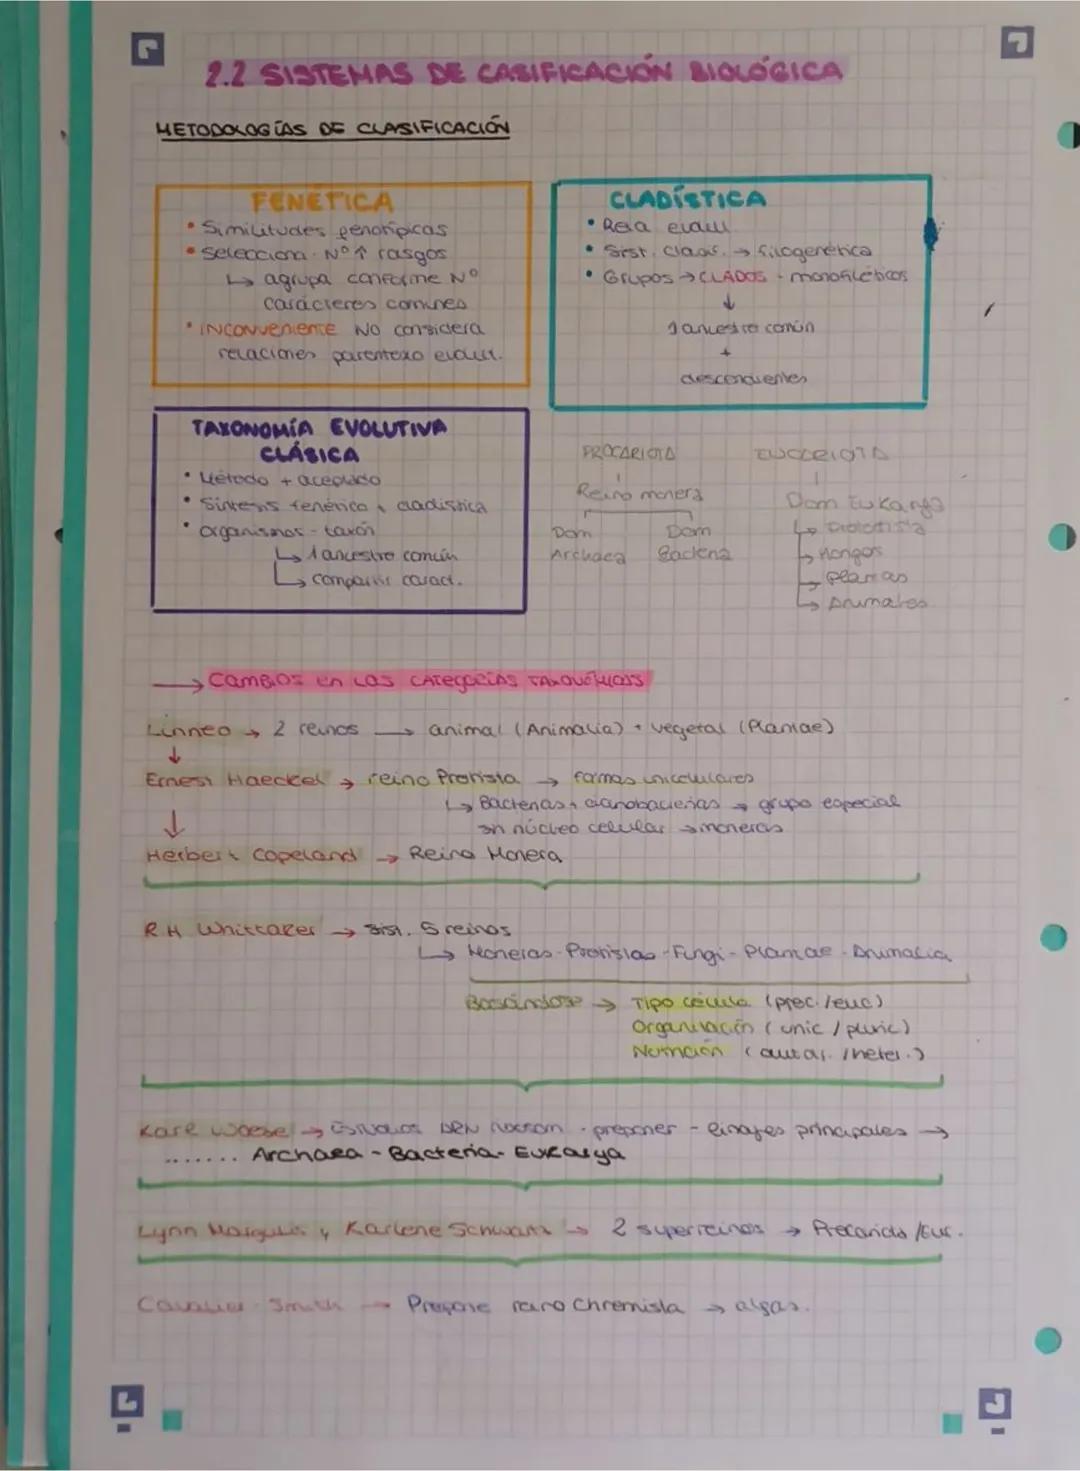 2.2 SISTEMAS DE CASIFICACIÓN BIOLÓGICA
METODOLOGÍAS DE CLASIFICACIÓN
FENÉTICA
• Similitudes fenotípicas
• Selecciona Nº ↑ rasgos
↳ agrupa conforme Nº
carácteres comunes
• INCONVENIENTE No considera
relaciones parentexo evolut.
CLADÍSTICA
• Rela evolu
• Sist. Clasif. → filogenética
• Grupos → CLADOS - monofiléticos
↓
1 ancestro común
+
descendientes
TAXONOMÍA EVOLUTIVA
CLÁSICA
• Método + aceptado
• Síntesis fenética y cladistica
• Organismos - taxón
↳ 1 ancestro común
↳ compartir caract.
PROCARIOTA
Reino monera
Dom Dom
Archaea Bacteria
EUCARIOTA
Dom Eukarya
↳ Protoctista
↳ Hongos
↳ Plantas
↳ Animales
→ Cambios en las categorías taxonómicas
Linneo → 2 reinos → animal (Animalia) + vegetal (Plantae)
↓
Ernest Haeckel → reino Protista → formas unicelulares
↳ Bacterias y cianobacterias → grupo especial
sin núcleo celular → moneras
↓
Herbert Copeland → Reino Monera
R.H Whittaker → Sist. 5 reinos
↳ Moneras - Protistas - Fungi - Plantae - Animalia
Basándose → Tipo célula (proc./euc)
Organización (unic / pluric)
Nutrición (autót. /heter.)
Karl Woese → Estudios ARN ribosom - proponer - linajes principales →
....... Archaea - Bacteria - Eukarya
Lynn Margulis y Karlene Schwartz → 2 superreinos → Procariota /Euc.
Cavalier-Smith → Propone reino Chromista → algas.